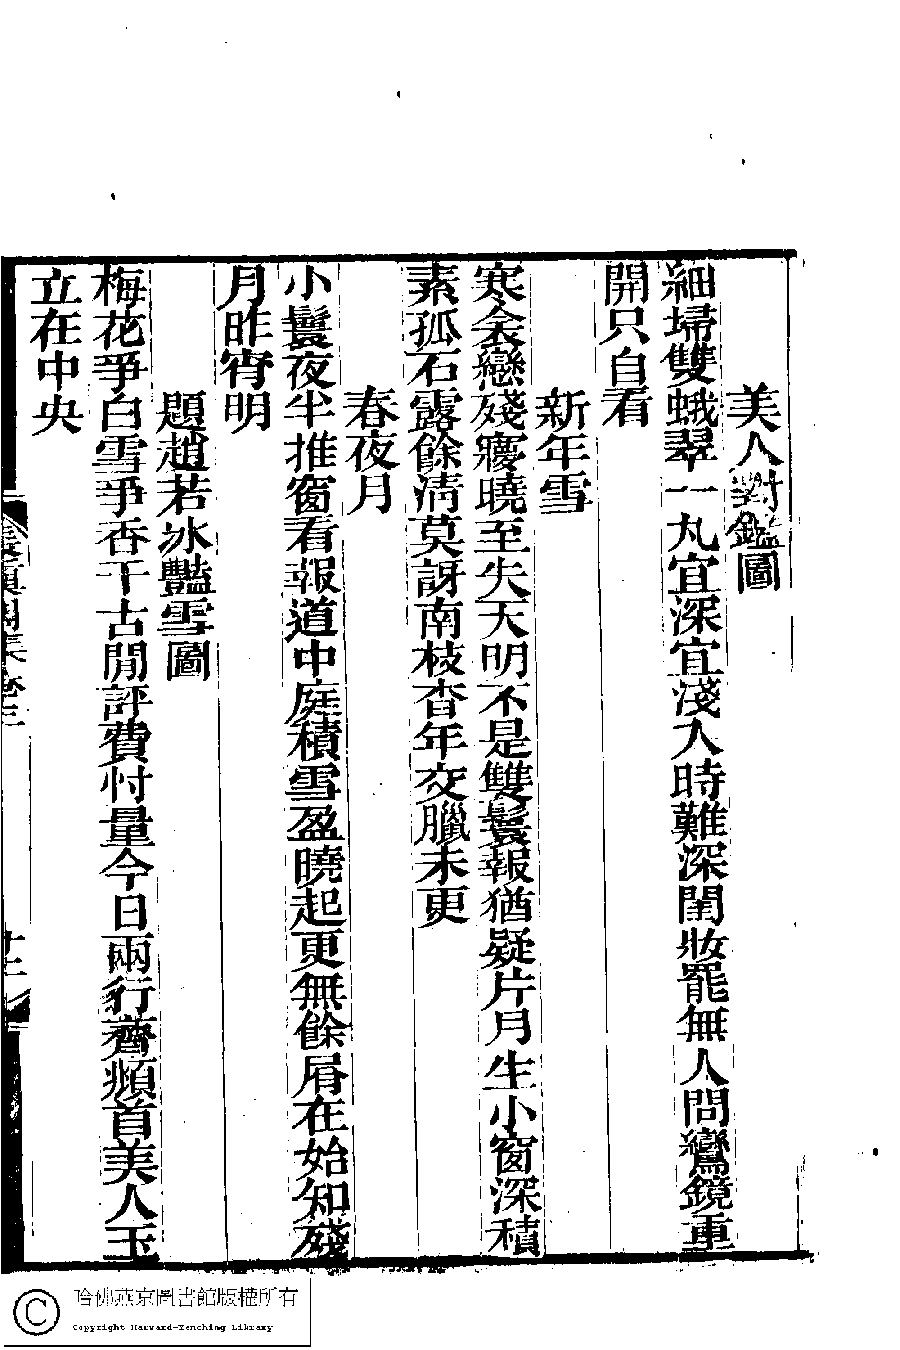 美人對鑑圖
細埽雙蛾翠一丸宜深宜淺人時難深閨妝罷無人問鸞鏡重
開只自看
新年雪
寒衾戀殘癭曉至失天明不是雙鬟報猶疑片月生小窗深積
素孤石露餘清莫訝南枝杳年交臘未更
春夜月
小鬟夜半推窗看報道中庭積雪盈曉起更無餘屑在始知殘
月昨宵明
題趙若冰豔雪圖
梅花爭白雪爭香千古閒評費忖量今日兩行齊頫首美人玉
立在中央
集卷三
十二
哈佛燕京圖書館版權所有
Copyright Harvard-Yenching Library